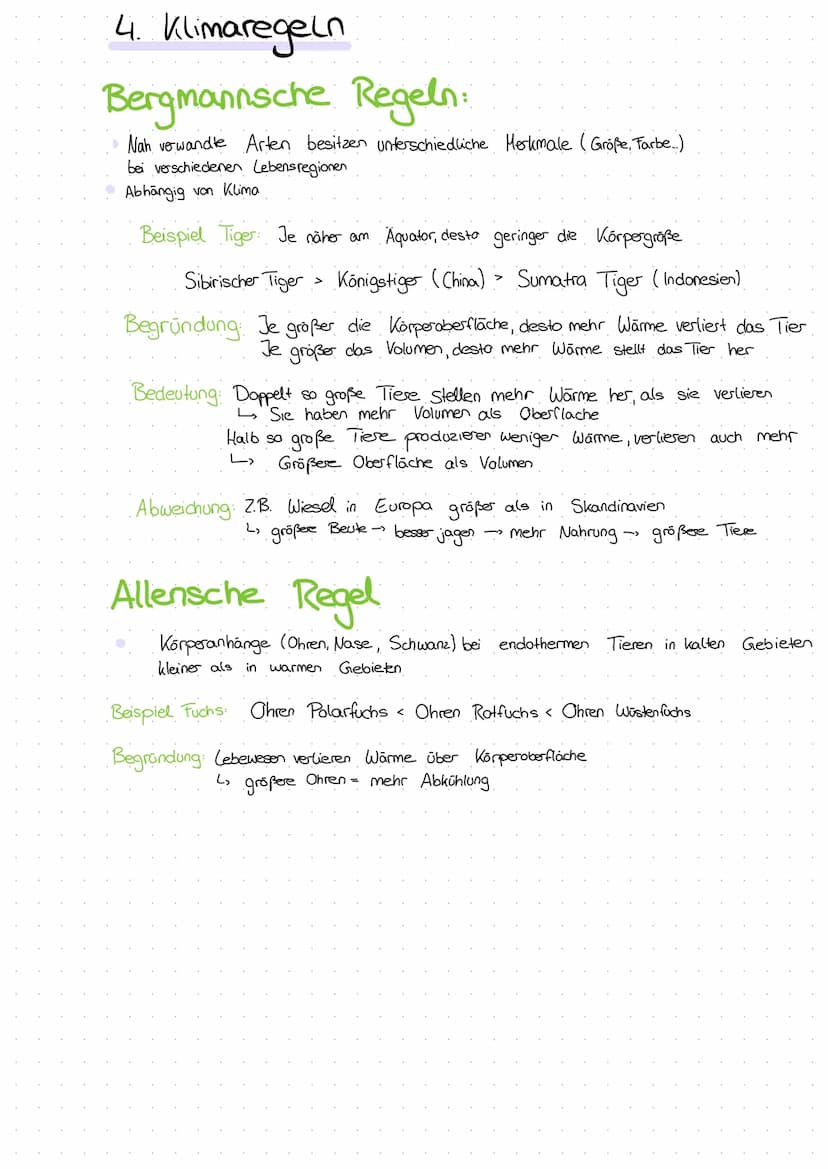 4. Klimaregeln
Bergmannsche Regeln:
Nah verwandte Arten besitzen unterschiedliche Merkmale (Größe, Farbe..)
bei verschiedenen Lebensregionen
Abhängig von Klima
Beispiel Tiger: Je näher am Äquator, desto geringer die Körpergröße
Sibirischer Tiger > Königstiger (China) > Sumatra Tiger (Indonesien)
Begründung: Je größer die Körperoberfläche, desto mehr Wärme verliert das Tier
Je größer das Volumen, desto mehr Wärme stellt das Tier her
Bedeutung: Doppelt so große Tiere stellen mehr Wärme her, als sie verlieren
↳ Sie haben mehr Volumen als Oberfläche
Halb so große Tiere produzieren weniger Wärme, verlieren auch mehr
↳ Größere Oberfläche als Volumen
Abweichung: Z.B. Wiesel in Europa größer als in Skandinavien
↳ größere Beute → besser jagen → mehr Nahrung → größere Tiere
Allensche Regel
Körperanhänge (Ohren, Nase, Schwanz) bei endothermen Tieren in kalten Gebieten
kleiner als in warmen Gebieten
Beispiel Fuchs: Ohren Polarfuchs < Ohren Rotfuchs < Ohren Wüstenfuchs
Begründung: Lebewesen verlieren Wärme über Körperoberfläche
↳ größere Ohren = mehr Abkühlung